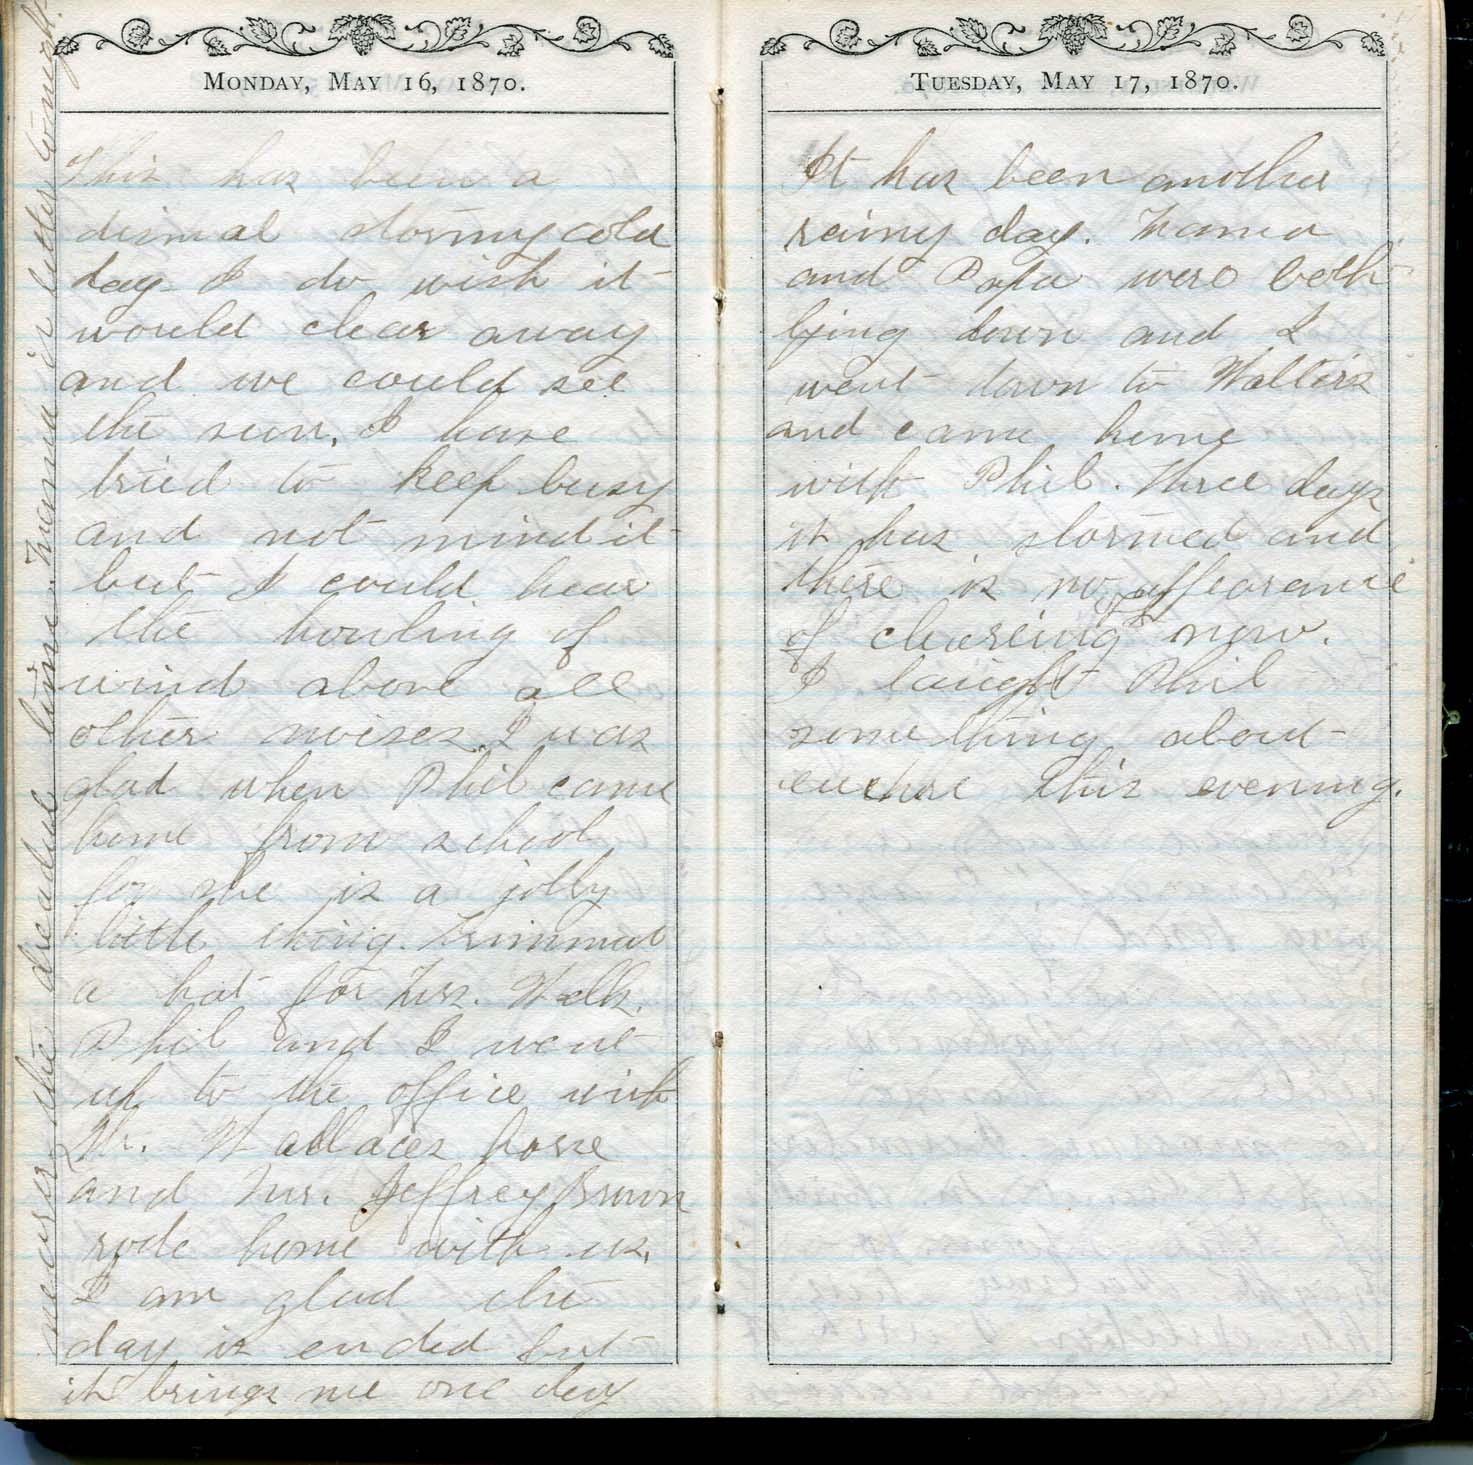 MONDAY, MAY 16, 1870.
This has been a
dismal stormy cold
day I do wish it
would clear away
and we could see
the sun. I have
tried to keep busy
and not mind it
but I could hear
the howling of
wind above all
other noises. I was
glad when Phil came
home from school
for she is a jolly
little thing. Trimmed
a hat for Mrs. Wells.
Phil and I went
up to the office with
Mr. Wallaces horse
and Mrs. Jeffrey Brown
rode home with us.
I am glad the
day is ended but
it brings me one day
nearer the dreaded time. Mama is better tonight.
TUESDAY, MAY 17, 1870.
It has been another
rainy day. Mama
and Papa were both
lying down and I
went down to Walters
and came home
with Phil. Three days
it has stormed and
there is no appearance
of clearing off now.
I taught Phil
something about
euchre this evening.